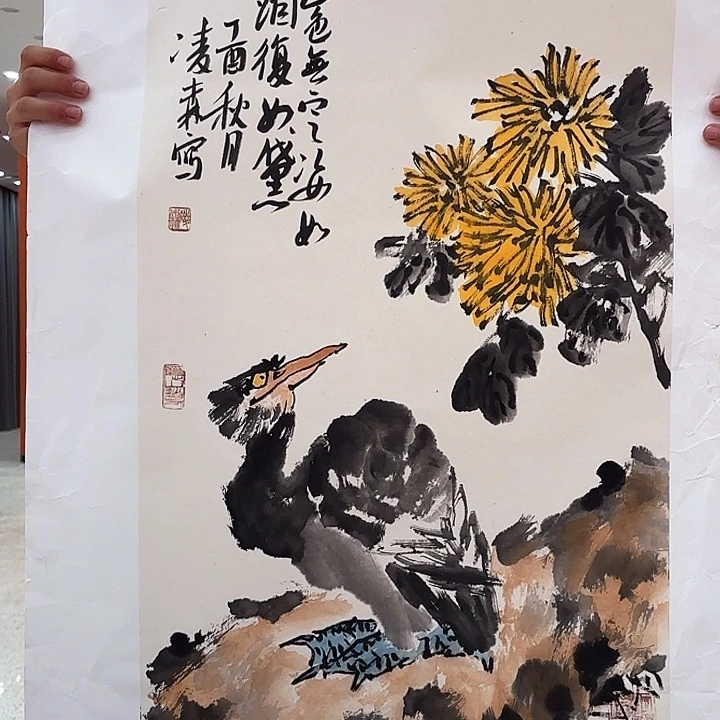 色無定姿如
復如黛
丁酉秋月
凌森寫